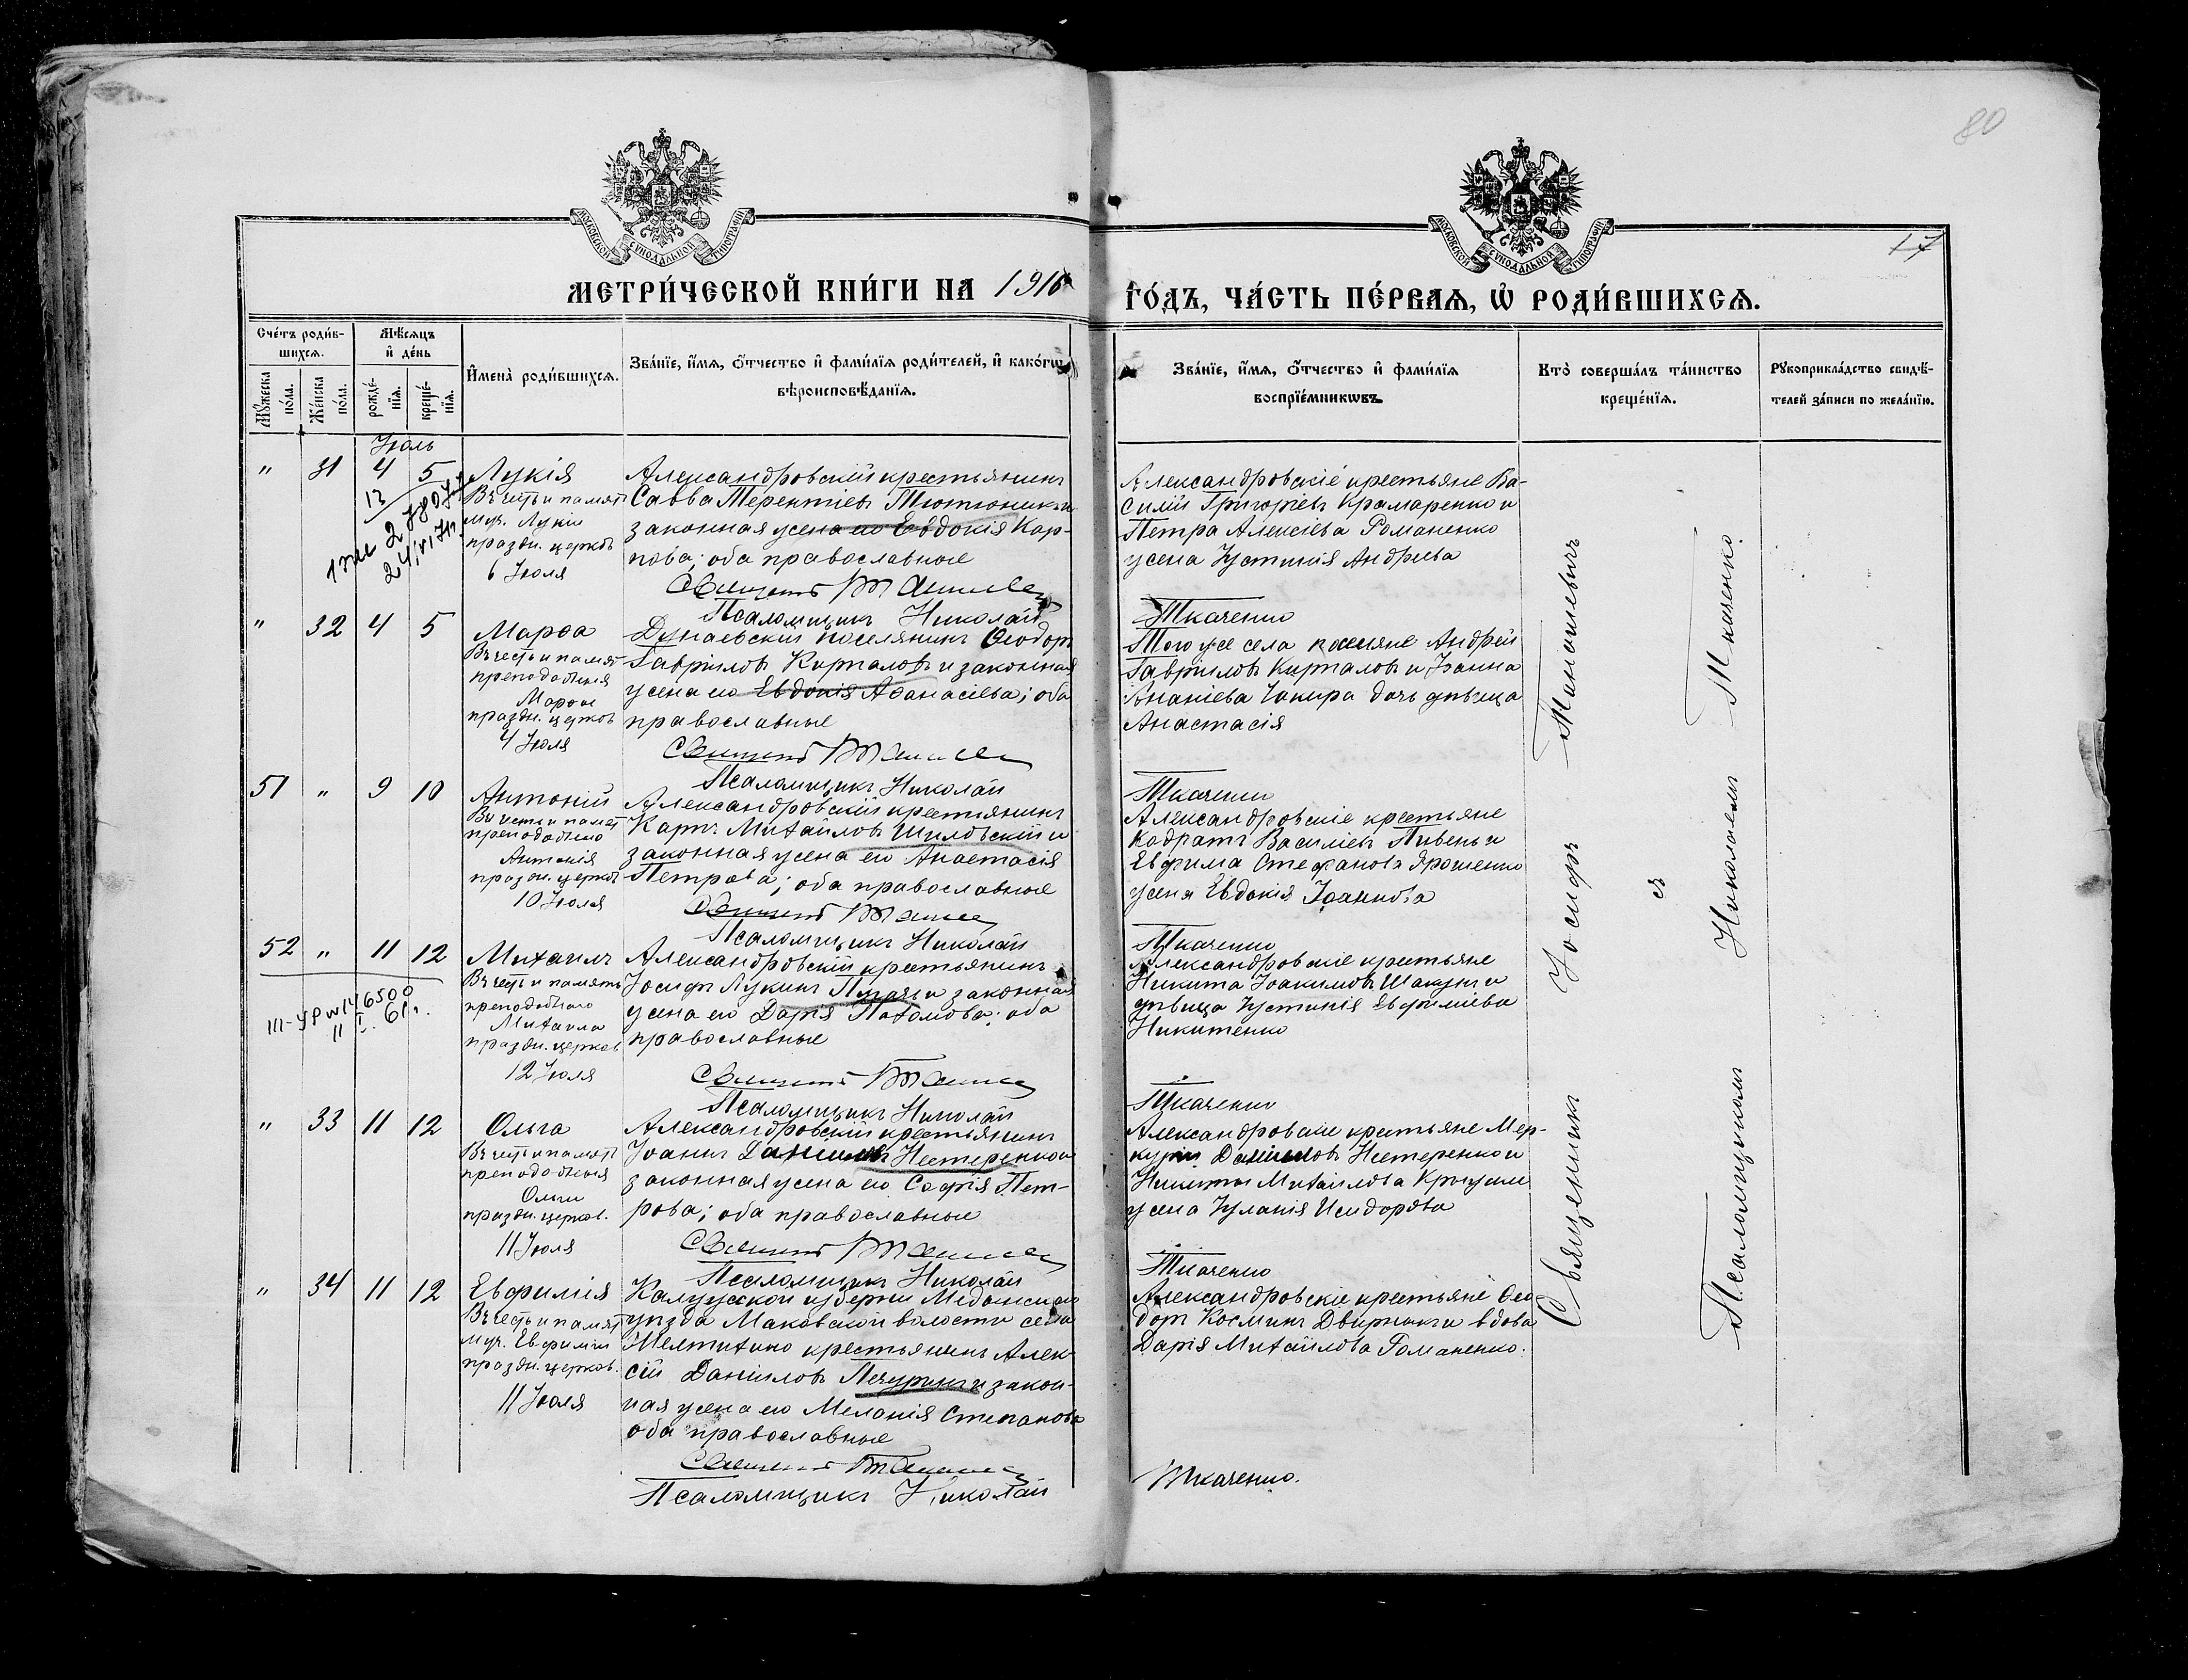 80
17
МОСКОВСКОЙ СѴНОДАЛЬНОЙ ТИПОГРАФІИ
МОСКОВСКОЙ СѴНОДАЛЬНОЙ ТИПОГРАФІИ
МЕТРИ́ЧЕСКОЙ КНИ́ГИ НА 1916 ГО́ДЪ, ЧА́СТЬ ПЕ́РВАѦ, Ѽ РОДИ́ВШИХСѦ.
Сче́тъ роди́в-
шихсѧ.
Мѣ́сѧцъ
и҆ де́нь
Мꙋ́жеска по́ла.
Же́нска по́ла.
рожде́-
нїѧ.
креще́-
нїѧ.
И҆мена̀ роди́вшихсѧ.
Зва́нїе, и҆́мѧ, ѻ҆́тчество и҆ фами́лїѧ роди́телей, и҆ како́гѡ
вѣроисповѣ́данїѧ.
Зва́нїе, и҆́мѧ, ѻ҆́тчество и҆ фами́лїѧ
воспрїе́мникѡвъ.
Кто̀ соверша́лъ та́инство
креще́нїѧ.
Рꙋкоприкла́дство свидѣ́-
телей за́писи по жела́нїю.
Іюль
" 31 4 5 Лукія
Въ честь и память
муч. Лукіи
праздн. церков
6 Іюля
Александровскій крестьянинъ
Савва Терентіевъ Тютюникъ и
законная жена его Евдокія Кар-
пова; оба православные
Псаломщикъ Николай
Александровскіе крестьяне Ва-
силій Григоріевъ Крамаренко и
Петра Алексіева Романенко
жена Іустинія Андреева
Ткаченко
" 32 4 5 Марѳа
Въ честь и память
преподобныя
Марѳы
праздн. церков
4 Іюля
Дунаевскій поселянинъ Ѳеодоръ
Гавріиловъ Курталовъ и законная
жена его Евдокія Аѳанасіева; оба
православные
Псаломщикъ Николай
Того же села поселяне Андрей
Гавріиловъ Курталовъ и Іоанна
Ананіева Чакира дочь дѣвица
Анастасія
Ткаченко
51 " 9 10 Антоній
Въ честь и память
преподобнаго
Антонія
праздн. церков
10 Іюля
Александровскій крестьянинъ
Карпъ Михайловъ Шиловскій и
законная жена его Анастасія
Петрова; оба православные
Псаломщикъ Николай
Александровскіе крестьяне
Кодратъ Василіевъ Пивень и
Евфима Стефанова Ярошенко
жена Евдокія Іоаннова
Ткаченко
52 " 11 12 Михаилъ
Въ честь и память
преподобнаго
Михаила
праздн. церков
12 Іюля
Александровскій крестьянинъ
Іосифъ Лукинъ Пугачъ и законная
жена его Дарія Пахомова; оба
православные
Псаломщикъ Николай
Александровскіе крестьяне
Никита Іоакимовъ Шакунъ и
дѣвица Іустинія Евфиміева
Никитенко
Ткаченко
" 33 11 12 Ольга
Въ честь и память
преподобныя
Ольги
праздн. церков.
11 Іюля
Александровскій крестьянинъ
Іоаннъ Даніиловъ Нестеренко и
законная жена его Софія Пет-
рова; оба православные
Псаломщикъ Николай
Александровскіе крестьяне Мер-
курій Даніиловъ Нестеренко и
Никиты Михаилова
жена Іуланія Исидорова
Ткаченко
" 34 11 12 Евфимія
Въ честь и память
муч. Евфиміи
праздн. церков.
11 Іюля
Калужской губерніи Медынскаго
уѣзда Маковской волости села
крестьянинъ Алек-
сій Даніиловъ Печуринъ и закон-
ная жена его Меланія Степанова
оба православные
Псаломщикъ Николай
Александровскіе крестьяне Ѳео-
доръ Косминъ и вдова
Дарія Михайлова Романенко.
Ткаченко.
Священникъ Іосифъ
съ
Псаломщикомъ Николаемъ Ткаченко